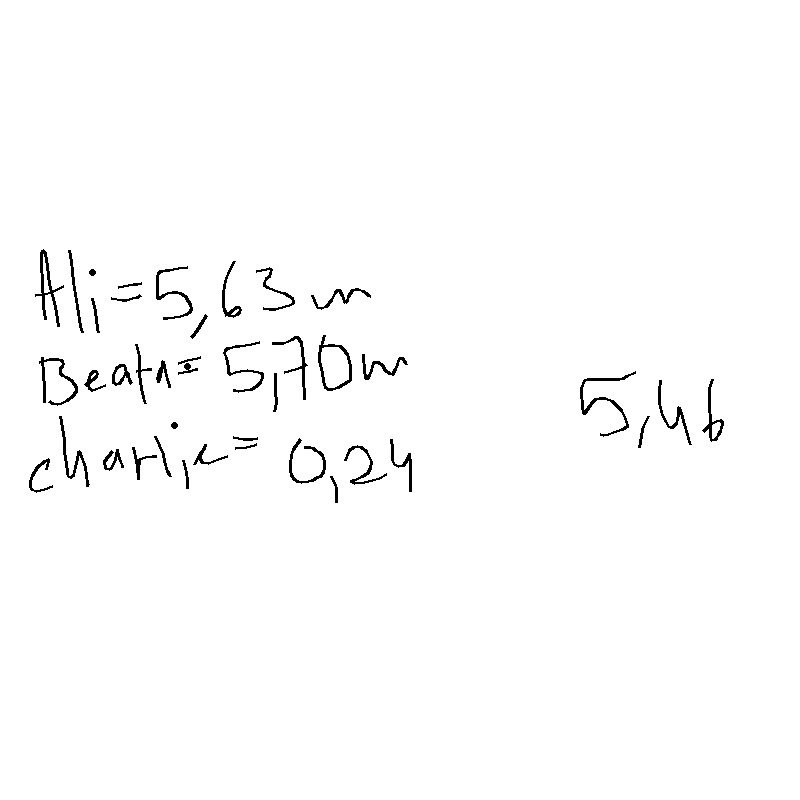 Ali=5,63m
Beatri= 5,70m
charlie= 0,24
5,46